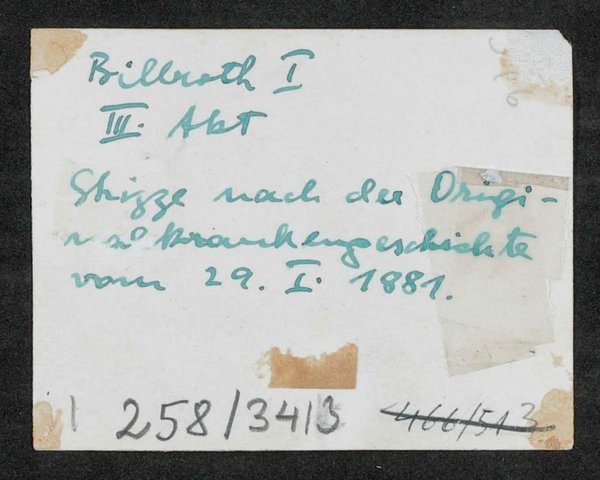 Billroth I
III. Akt
Skizze nach der Origi-
nalkrankengeschichte
vom 29. I. 1881.
258/3413
466/513